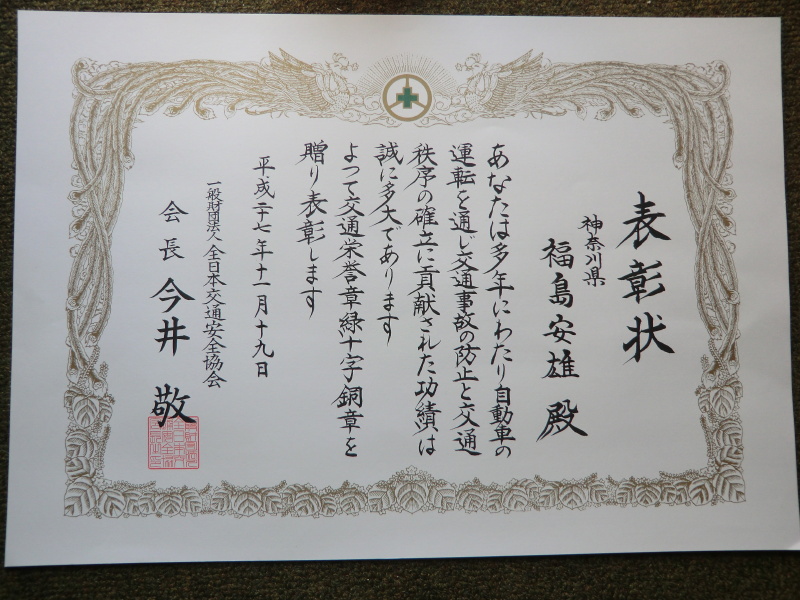 表彰状
神奈川県
福島安雄 殿
あなたは多年にわたり自動車の
運転を通じ交通事故の防止と交通
秩序の確立に貢献された功績は
誠に多大であります
よって交通栄誉章緑十字銅章を
贈り表彰します
平成二十七年十一月十九日
一般財団法人 全日本交通安全協会
会長 今井 敬